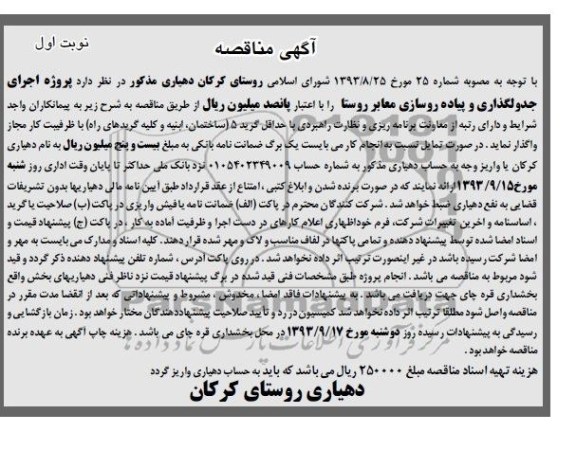 آگهی مناقصه
نوبت اول
با توجه به مصوبه شماره ۲۵ مورخ ۱۳۹۳/۸/۲۵ شورای اسلامی روستای کرکان دهیاری مذکور در نظر دارد پروژه اجرای
جدولگذاری و پیاده روسازی معابر روستا را با اعتبار پانصد میلیون ریال از طریق مناقصه به شرح زیر به پیمانکاران واجد
شرایط و دارای رتبه از معاونت برنامه ریزی و نظارت راهبردی با حداقل گرید ۵ (ساختمان، ابنیه و کلیه گریدهای راه) با ظرفییت کار مجاز
واگذار نماید . در صورت تمایل نسبت به انجام کار می بایست یک برگ ضمانت نامه بانکی به مبلغ بیست و پنج میلیون ریال به نام دهیاری
کرکان یا واریز وجه به حساب دهیاری مذکور به شماره حساب ۰۱۰۵۴۰۲۳۴۹۰۰۹ نزد بانک ملی حداکثر تا پایان وقت اداری روز شنبه
مورخ۱۳۹۳/۹/۱۵ ارائه نمایند که در صورت برنده شدن و ابلاغ کتبی ، امتناع از عقد قرارداد طبق آیین نامه مالی دهیاریها بدون تشریفات
قضایی به نفع دهیاری ضبط خواهد شد . شرکت کنندگان محترم در پاکت (الف) ضمانت نامه یا فیش واریزی در پاکت (ب) صلاحیت یا گرید
، اساسنامه و اخرین تغییرات شرکت، فرم خوداظهاری اعلام کارهای در دست اجرا و ظرفیت آماده به کار ، در پاکت (ج) پیشنهاد قیمت و
اسناد امضا شده توسط پیشنهاد دهنده و تمامی پاکتها در لفاف مناسب و لاک و مهر شده قرار دهند . کلیه اسناد و مدارک می بایست به مهر و
امضا شرکت رسیده باشد در غیر اینصورت ترتیب اثر داده نخواهد شد . در روی پاکت آدرس ، شماره تلفن پیشنهاد دهنده ذکر گردد و قید
شود مربوط به مناقصه می باشد . انجام پروژه طبق مشخصات فنی قید شده در برگ پیشنهاد قیمت نزد ناظر فنی دهیاریهای بخش واقع
بخشداری قره چای جهت دریافت می باشد . به پیشنهادات فاقد امضا ، مخدوش ، مشروط و پیشنهاداتی که بعد از انقضا مدت مقرر در
مناقصه واصل شود مطلقا ترتیب اثر داده نخواهد شد کمیسیون در رد و تایید صلاحیت پیشنهاددهندگان مختار خواهد بود . زمان بازگشایی و
رسیدگی به پیشنهادات رسیده روز دوشنبه مورخ ۱۳۹۳/۹/۱۷ در محل بخشداری قره چای می باشد . هزینه چاپ آگهی به عهده برنده
مناقصه خواهد بود .
هزینه تهیه اسناد مناقصه مبلغ ۲۵۰۰۰۰ ریال می باشد که باید به حساب دهیاری واریز گردد
دهیاری روستای کرکان